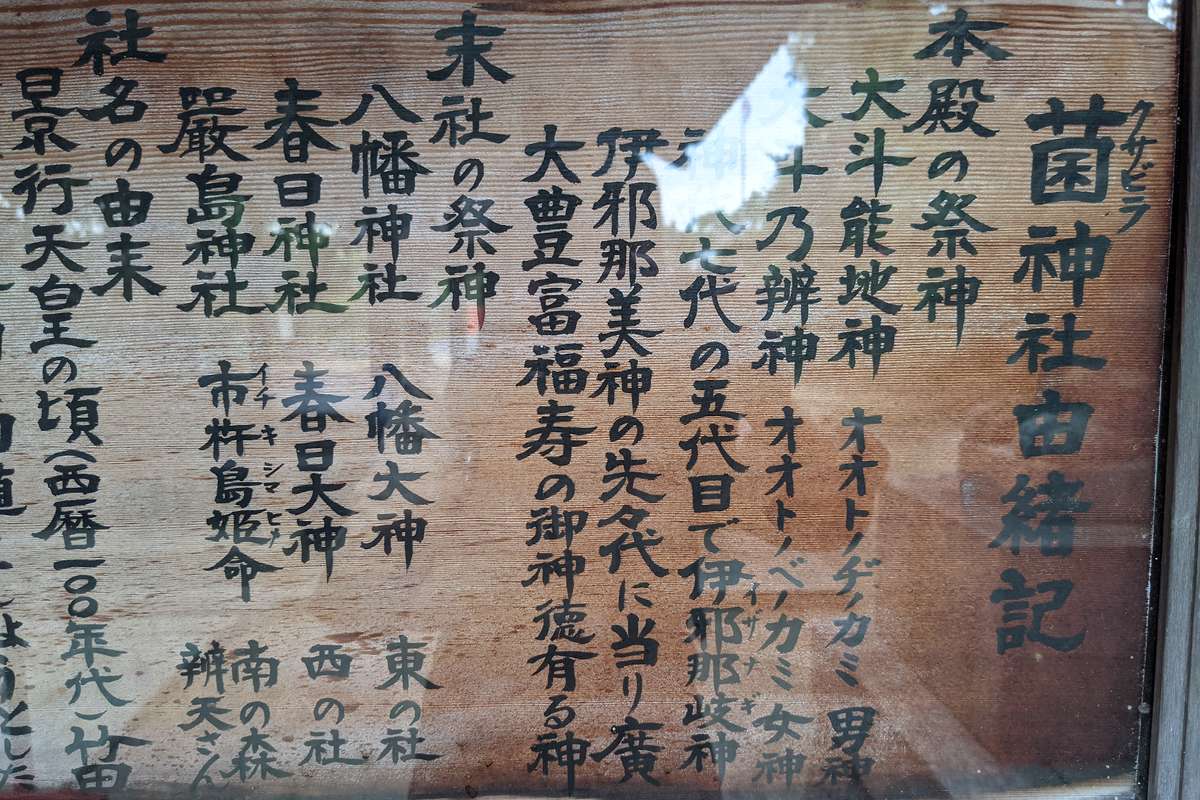 クサビラ
菌神社由緒記
本殿の祭神
大斗能地神 オオトノヂノカミ 男神
大斗乃辨神 オオトノベノカミ 女神
神 七代の五代目で伊邪那岐神
イザナギ
伊邪那美神の先々代に当り廣
大豊富福寿の御神徳有る神
末社の祭神
八幡神社 八幡大神 東の社
春日神社 春日大神 西の社
嚴島神社 市杵島姫命 南の森
イチキシマヒメ
辨天さん
社名の由来
景行天皇の頃(西暦一〇〇年代)竹田
しようとした